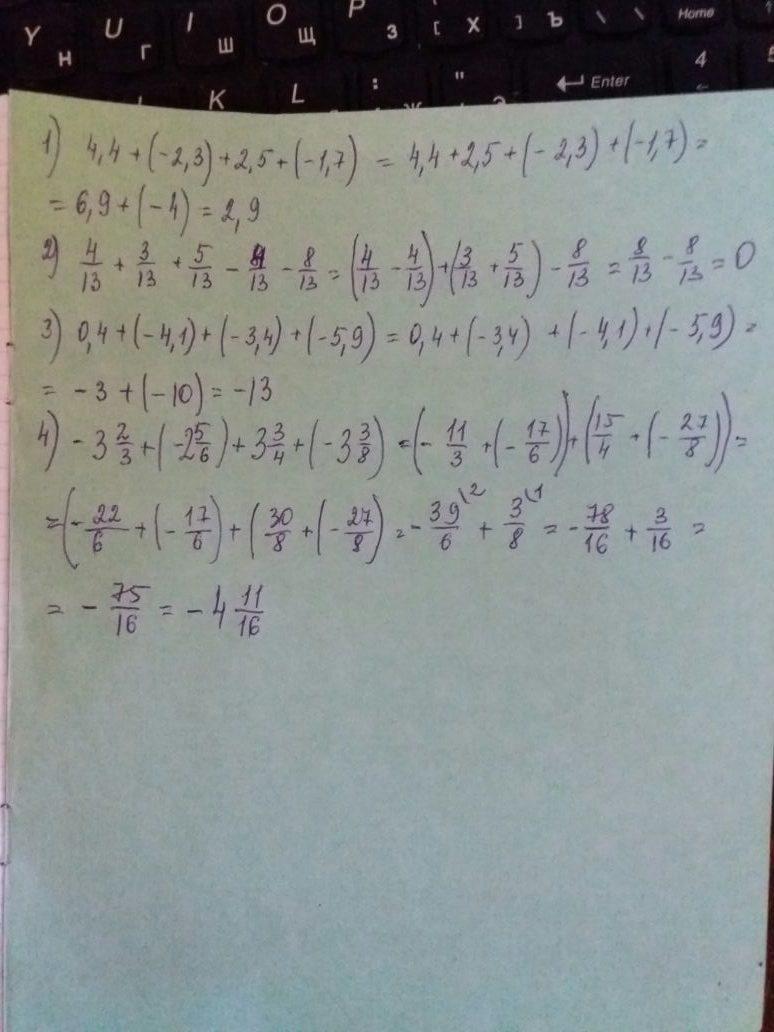 Y Н U Г I Ш O Щ P З [ Х ] Ъ \ \ Home
K L : " Enter 4 5
1) 4,4+(-2,3)+2,5+(-1,7) = 4,4+2,5+(-2,3)+(-1,7)=
= 6,9+(-4) = 2,9
2) 4/13 + 3/13 + 5/13 - 4/13 - 8/13 = (4/13 - 4/13)+(3/13 + 5/13) - 8/13 = 8/13 - 8/13 = 0
3) 0,4+(-4,1)+(-3,4)+(-5,9) = 0,4+(-3,4) +(-4,1)+(-5,9) =
= -3+(-10) = -13
4) -3 2/3 +(-2 5/6)+3 3/4 +(-3 3/8) =(- 11/3 +(- 17/6))+(15/4 +(- 27/8))=
=(- 22/6 +(- 17/6)+(30/8 +(- 27/8) = - 39/6 \2 + 3/8 \1 = - 78/16 + 3/16 =
= - 75/16 = -4 11/16